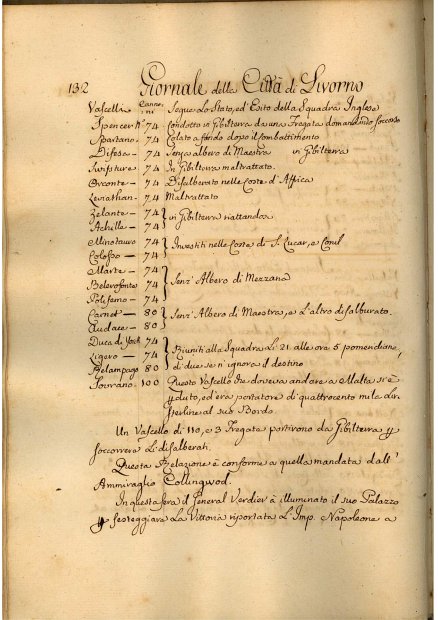 132 Giornale della Città di Livorno
Vascelli Cannoni Segue Lo Stato, ed' Esito della Squadra Inglese
Spencer N.º 74 Condotto in Gibilterra da una Fregata domandando soccorso
Spartano - 74 Colato a fondo dopo il Combattimento
Difesa - 74 Senza albero di Maestra in Gibilterra
Swifture - 74 In Gibilterra maltrattato.
Orconte - 74 Disalberato nelle Coste d'Affrica
Leviathan - 74 Maltrattato
Zelante - 74
Achille - 74 in Gibilterra riattandosi
Minotauro 74
Colosso - 74 Investiti nelle Coste di S. Lucar, e Conil
Marte - 74
Belerofonte 74 Senz' Albero di Mezzana
Polifemo - 74
Carnet - 80
Audace - 80 Senz' Albero di Maestra, e L'altro disalburato.
Duca di York 74
Ligero - 74 Riuniti alla Squadra Li 21 alle ore 5 pomeridiane,
Relampago 80 di due se n' ignora il destino
Sovrano - 100 Questo Vascello che doveva andare a Malta si è
pduto, ed era portatore di quattrocento mila lire
sterline al suo Bordo.
Un Vascello di 110, e 3 Fregate partirono da Gibilterra p
soccorrere Li disalberati.
Questa Relazione è conforme a quella mandata dall'
Ammiraglio Collingwod.
In questa sera il General Verdier à illuminato il suo Palazzo
p festeggiare La Vittoria riportata L' Imp. Napoleone a